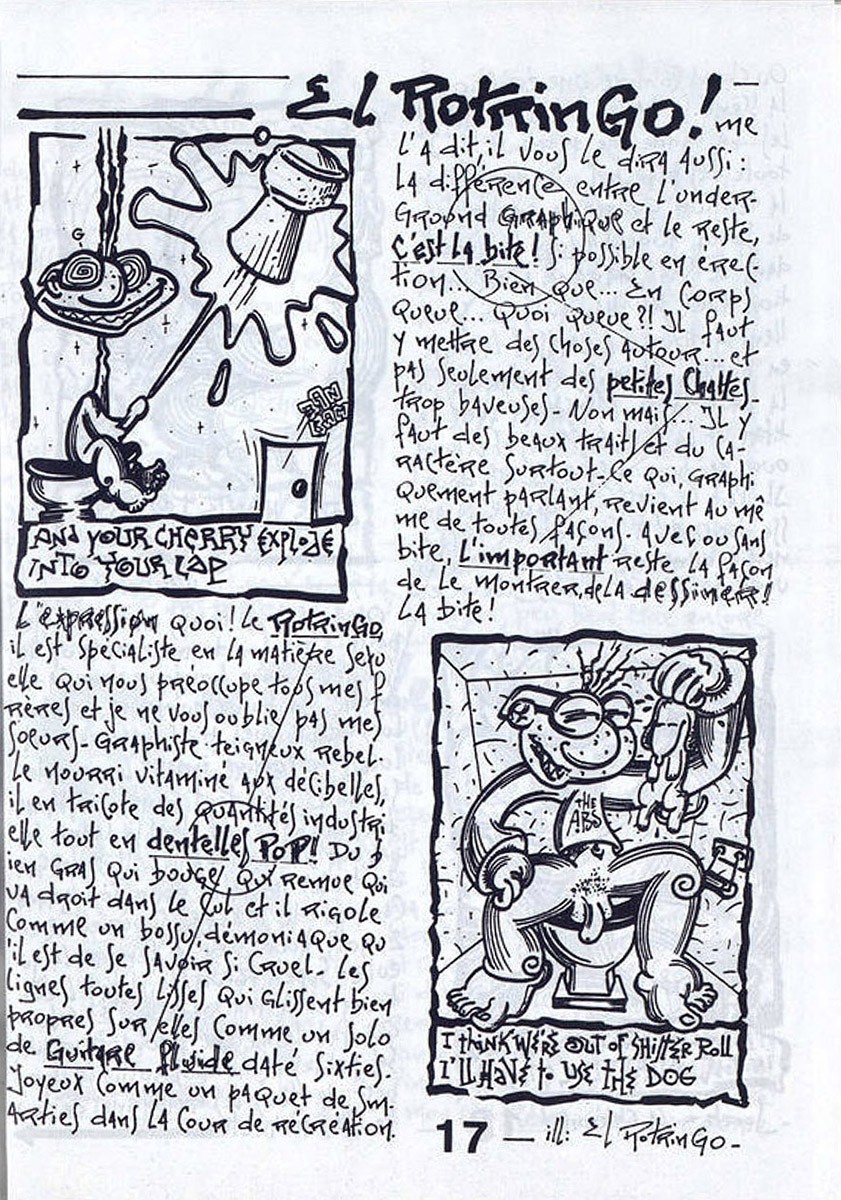 El RotRinGo!
me
l'a dit, il vous le dira aussi :
la différence entre l'under-
Ground Graphique et le reste,
C'est la bite! Si possible en érec-
tion... Bien que... En corps
queue... Quoi queue?! Il faut
y mettre des choses autour... et
pas seulement des petites Chattes
trop baveuses - Non mais... Il y
faut des beaux traits et du ca-
ractère surtout - Ce qui, Graphi
quement parlant, revient au mê
me de toutes façons - Avec ou sans
bite, l'important reste la façon
de le montrer, de la dessiner!!
La bite!
G
BAN
BAM
AND YOUR CHERRY EXPLODE
INTO YOUR LAP
L'expression quoi! Le RotRinGo,
il est spécialiste en la matière sexu
elle qui nous préoccupe tous mes f
rères et je ne vous oublie pas mes
soeurs - Graphiste teigneux rebel-
le nourri vitaminé aux décibelles,
il en tricote des quantités industri
elle tout en dentelles PoP! Du b
ien Gras qui bouge qui remue qui
va droit dans le Cul et il rigole
Comme un bossu, démoniaque qu
'il est de se savoir si cruel - Les
lignes toutes lisses qui glissent bien
propres sur elles Comme un solo
de Guitare fluide daté Sixties.
Joyeux Comme un paquet de Sm-
arties dans la Cour de récréation.
THE
ABS
I think WE'RE out of SHITTER Roll
I'LL HAVE to USE THE DOG
17 — ill: El RotRinGo -